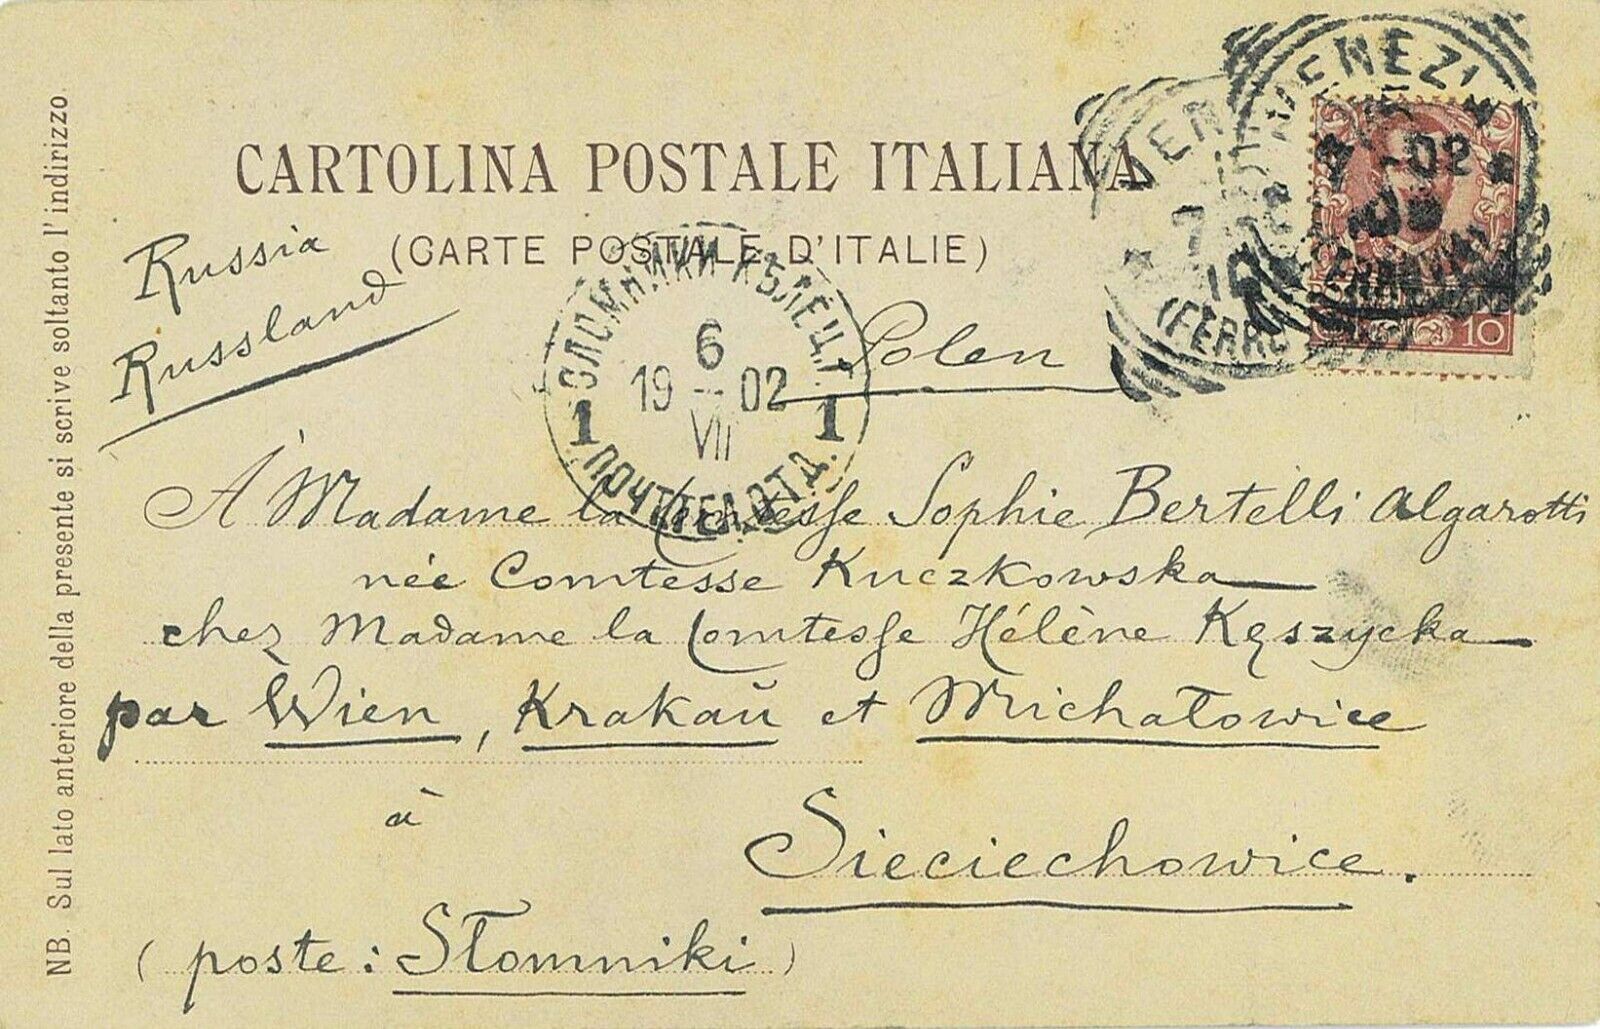 NB. Sul lato anteriore della presente si scrive soltanto l'indirizzo
CARTOLINA POSTALE ITALIANA
(CARTE POSTALE D'ITALIE)
VENEZI
-02
10
VEN
(FERR
Russia
Russland
Polen
СЛОМНИКИ КѢЛЕЦ.Г.
6
19 – 02
VII
1 1
ПОЧТ.ТЕЛ.ОТД.
À Madame la Comtesse Sophie Bertelli Algarotti
née Comtesse Kuczkowska
chez Madame la Comtesse Hélène Kęszycka
par Wien, Krakaŭ et Michałowice
à
Sieciechowice.
(poste: Słomniki)